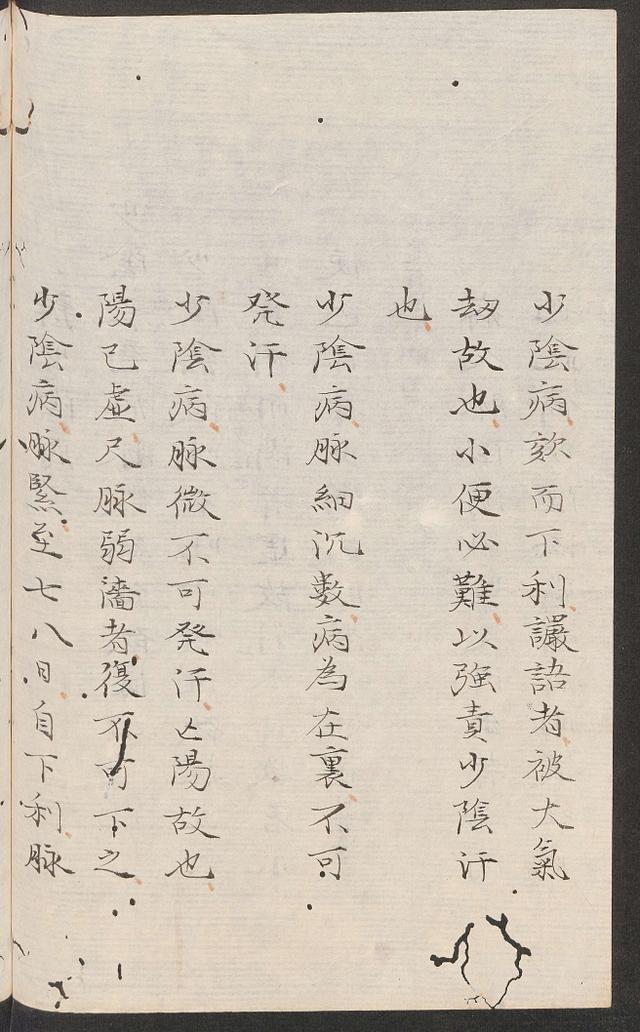 少陰病欬而下利讝語者被大氣
劫故也小便必難以强責少陰汗
也
少陰病脉細沉數病為在裏不可
発汗
少陰病脉微不可発汗亡陽故也
陽已虛尺脉弱濇者復不可下之
少陰病脉緊至七八日自下利脉